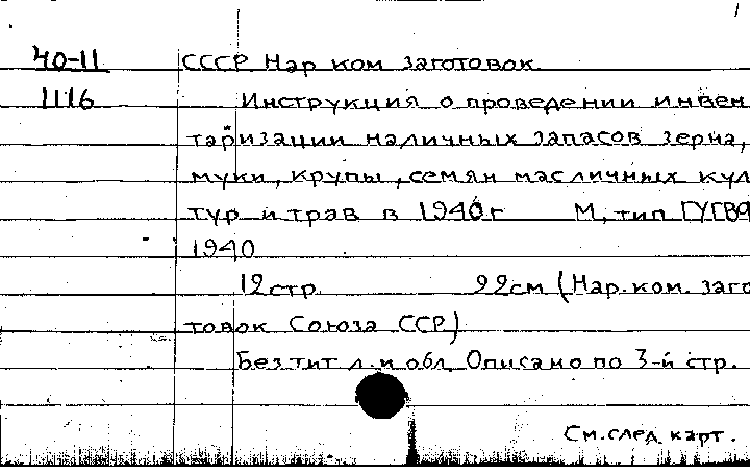 40-11 СССР Нар ком заготовок
1116 Инструкция о проведении инвен
таризации наличных запасов зерна,
муки, крупы, семян масличных кул
тур и трав в 1940г М, тип ГУГВФ
1940
12стр. 22см (Нар.ком. заго
товок Союза ССР)
Без тит л. и обл. Описано по 3-й стр.
См.след карт.